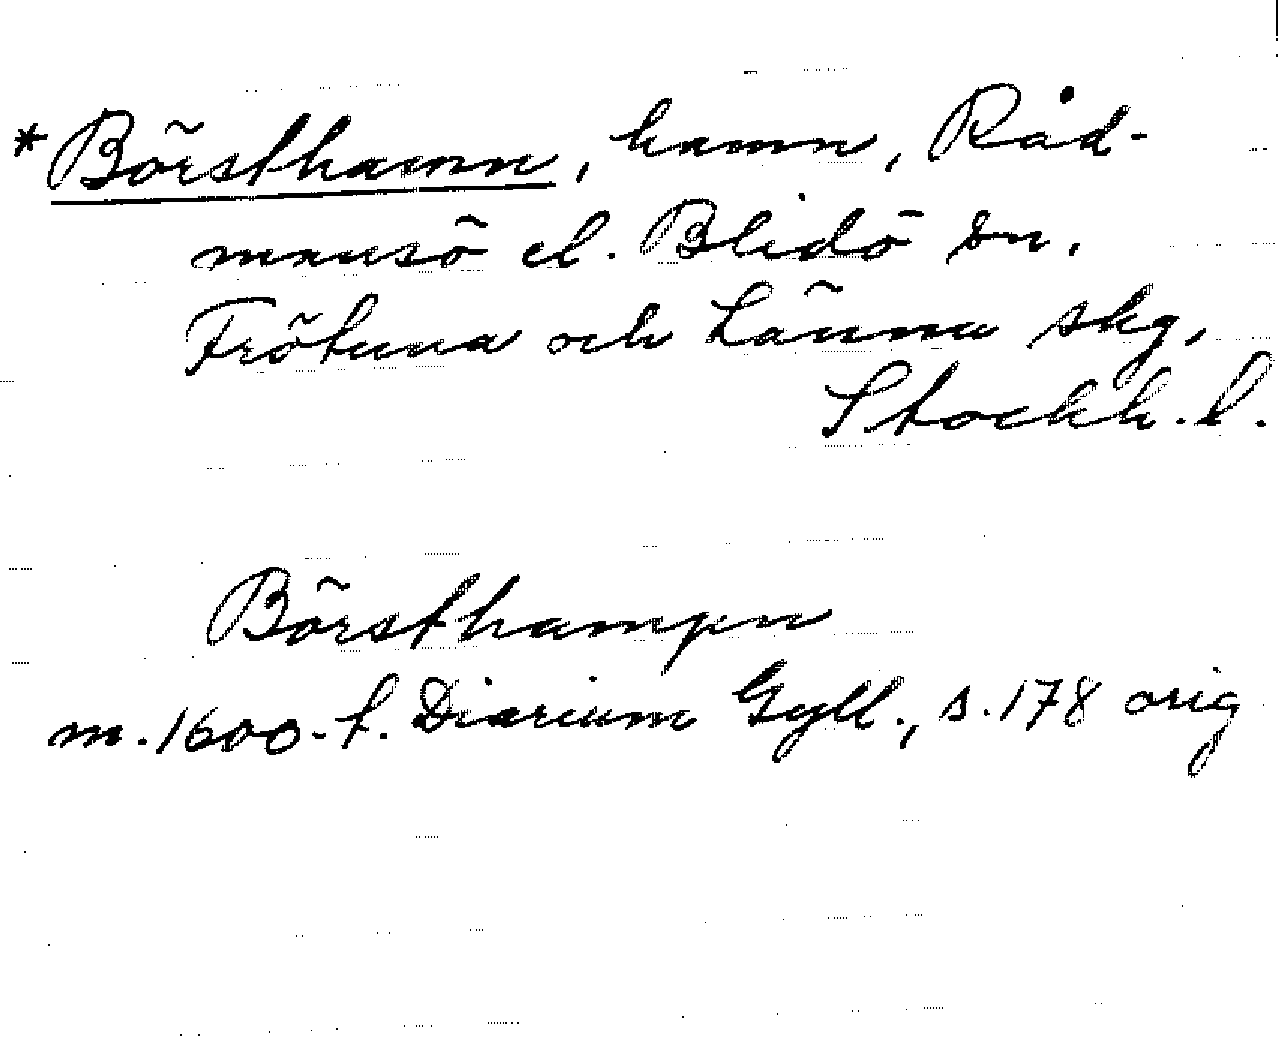 *Börsthamn, hamn, Råd-
mansö el. Blidö sn.
Frötuna och Länna skg,
Stockh. l.
Börsthampn
m. 1600-t. Diarium Gyll., s. 178 orig